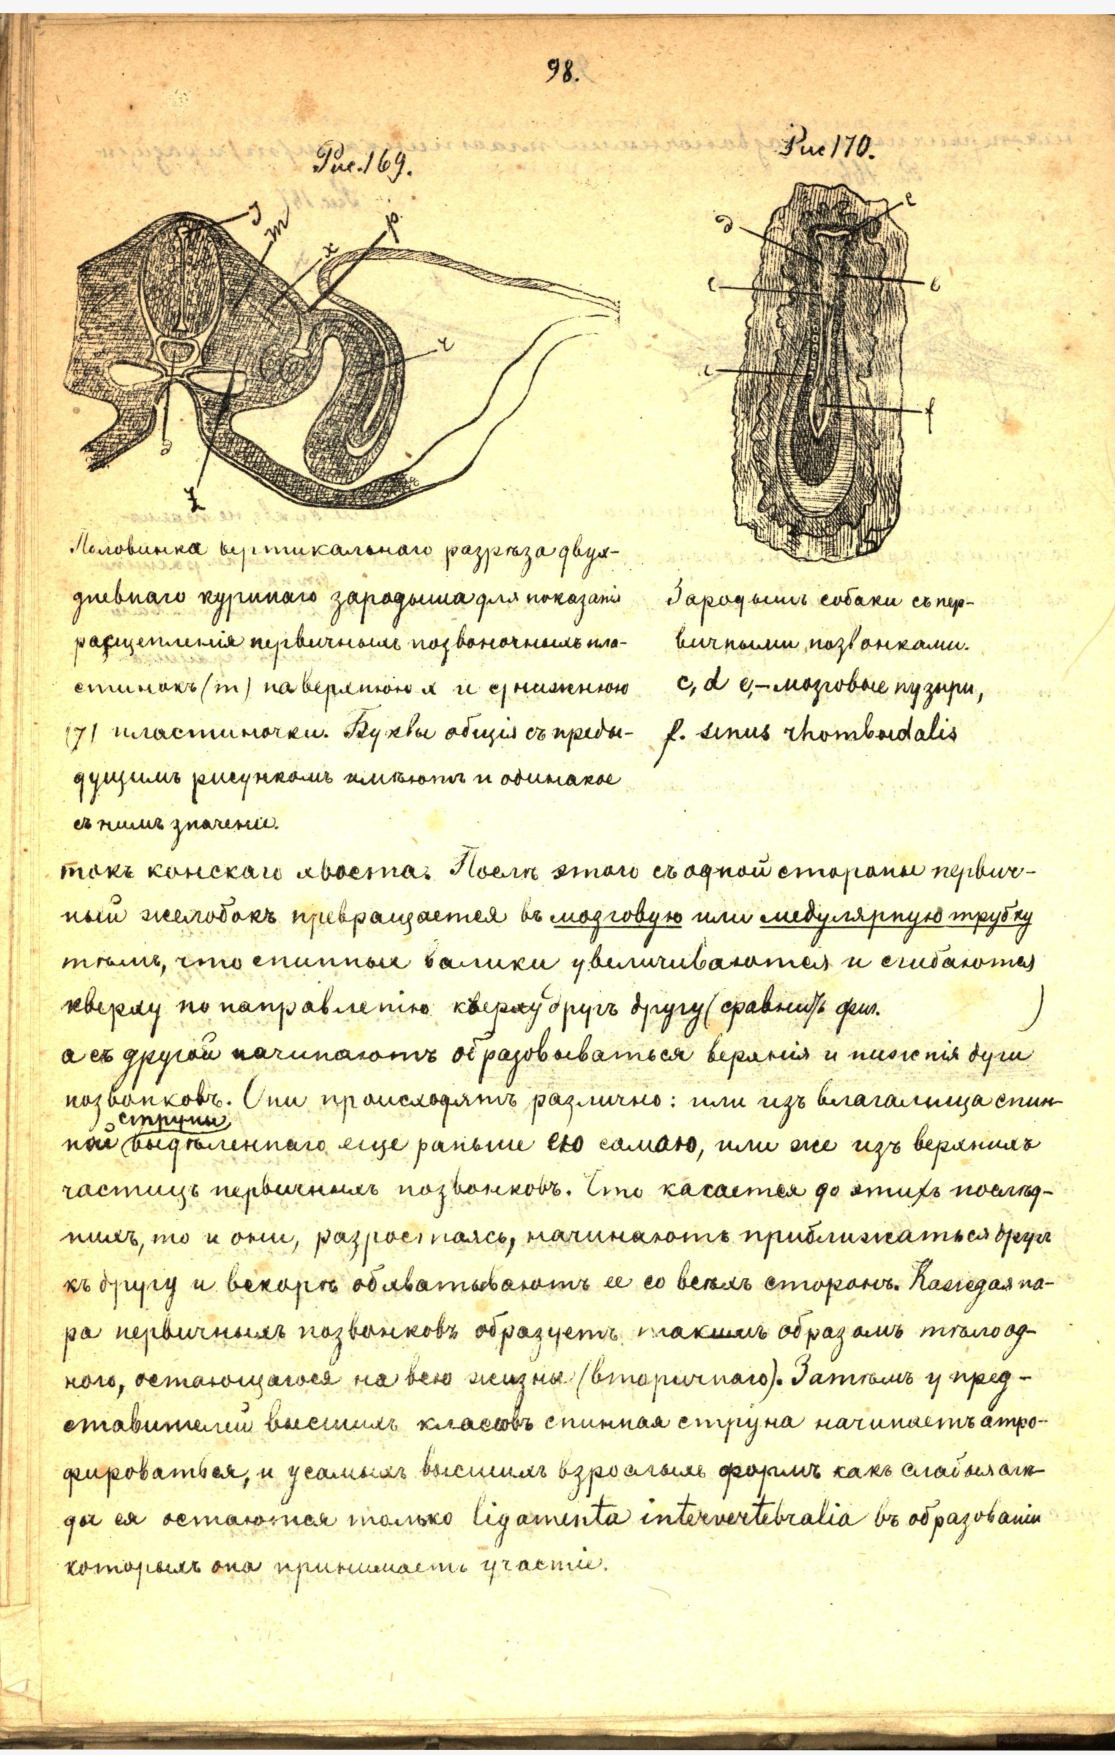 98.
Рис. 169.
Рис 170.
Половинка вертикальнаго разрѣза двух-
дневнаго куринаго зародыша для показанія
расщепленія первичныхъ позвоночныхъ пла-
стинокъ (m) на верхнюю x и нижнюю
пластиночки. Буквы общія съ преды-
дущимъ рисункомъ имѣютъ и одинакое
съ нимъ значеніе.
Зародышъ собаки съ пер-
вичными позвонками.
c, d e, – мозговые пузыри,
f. sinus rhomboidalis
токъ конскаго хвоста. Послѣ этого съ одной стороны первич-
ный желобокъ превращается въ мозговую или медулярную трубку
тѣмъ, что спинные валики увеличиваются и сгибаются
кверху по направленію кверху другъ другу (сравнить фиг. )
а съ другой начинаютъ образовываться верхнія и нижнія дуги
позвонковъ. Они происходятъ различно: или изъ влагалища спин-
струны
ной выдѣленнаго еще раньше ею самою, или же изъ верхнихъ
частицъ первичныхъ позвонковъ. Что касается до этихъ послѣд-
нихъ, то и они, разростаясь, начинаютъ приближаться другъ
къ другу и вскорѣ обхватываютъ ее со всѣхъ сторонъ. Каждая па-
ра первичныхъ позвонковъ образуетъ такимъ образомъ тѣло од-
ного, остающагося на всю жизнь (вторичнаго). Затѣмъ у пред-
ставителей высшихъ класовъ спинная струна начинаетъ атро-
фироваться, и у самыхъ высшихъ взрослыхъ формъ какъ слабые слѣ-
ды ея остаются только ligamenta intervertebralia въ образованіи
которыхъ она принимаетъ участіе.